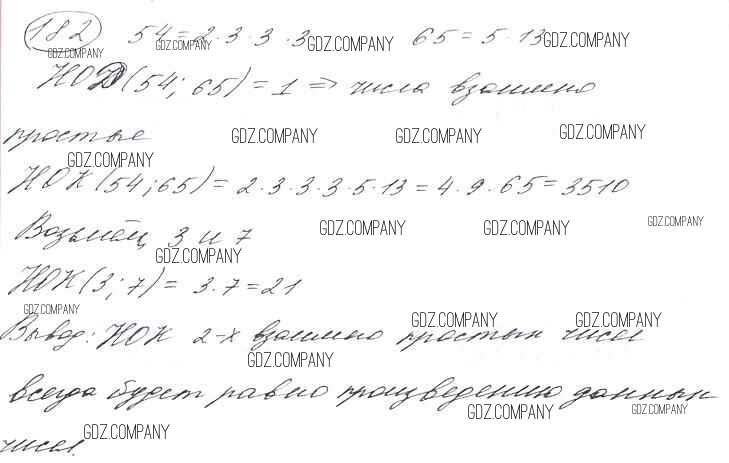 182 54 = 2 · 3 · 3 · 3 65 = 5 · 13
НОД (54; 65) = 1 => числа взаимно
простые
НОК (54; 65) = 2 · 3 · 3 · 3 · 5 · 13 = 4 · 9 · 65 = 3510
Возьмём 3 и 7
НОК (3; 7) = 3 · 7 = 21
Вывод: НОК 2-х взаимно простых чисел
всегда будет равно произведению данных
чисел.
GDZ.COMPANY GDZ.COMPANY GDZ.COMPANY GDZ.COMPANY
GDZ.COMPANY GDZ.COMPANY GDZ.COMPANY GDZ.COMPANY
GDZ.COMPANY GDZ.COMPANY GDZ.COMPANY GDZ.COMPANY
GDZ.COMPANY GDZ.COMPANY GDZ.COMPANY GDZ.COMPANY
GDZ.COMPANY GDZ.COMPANY GDZ.COMPANY